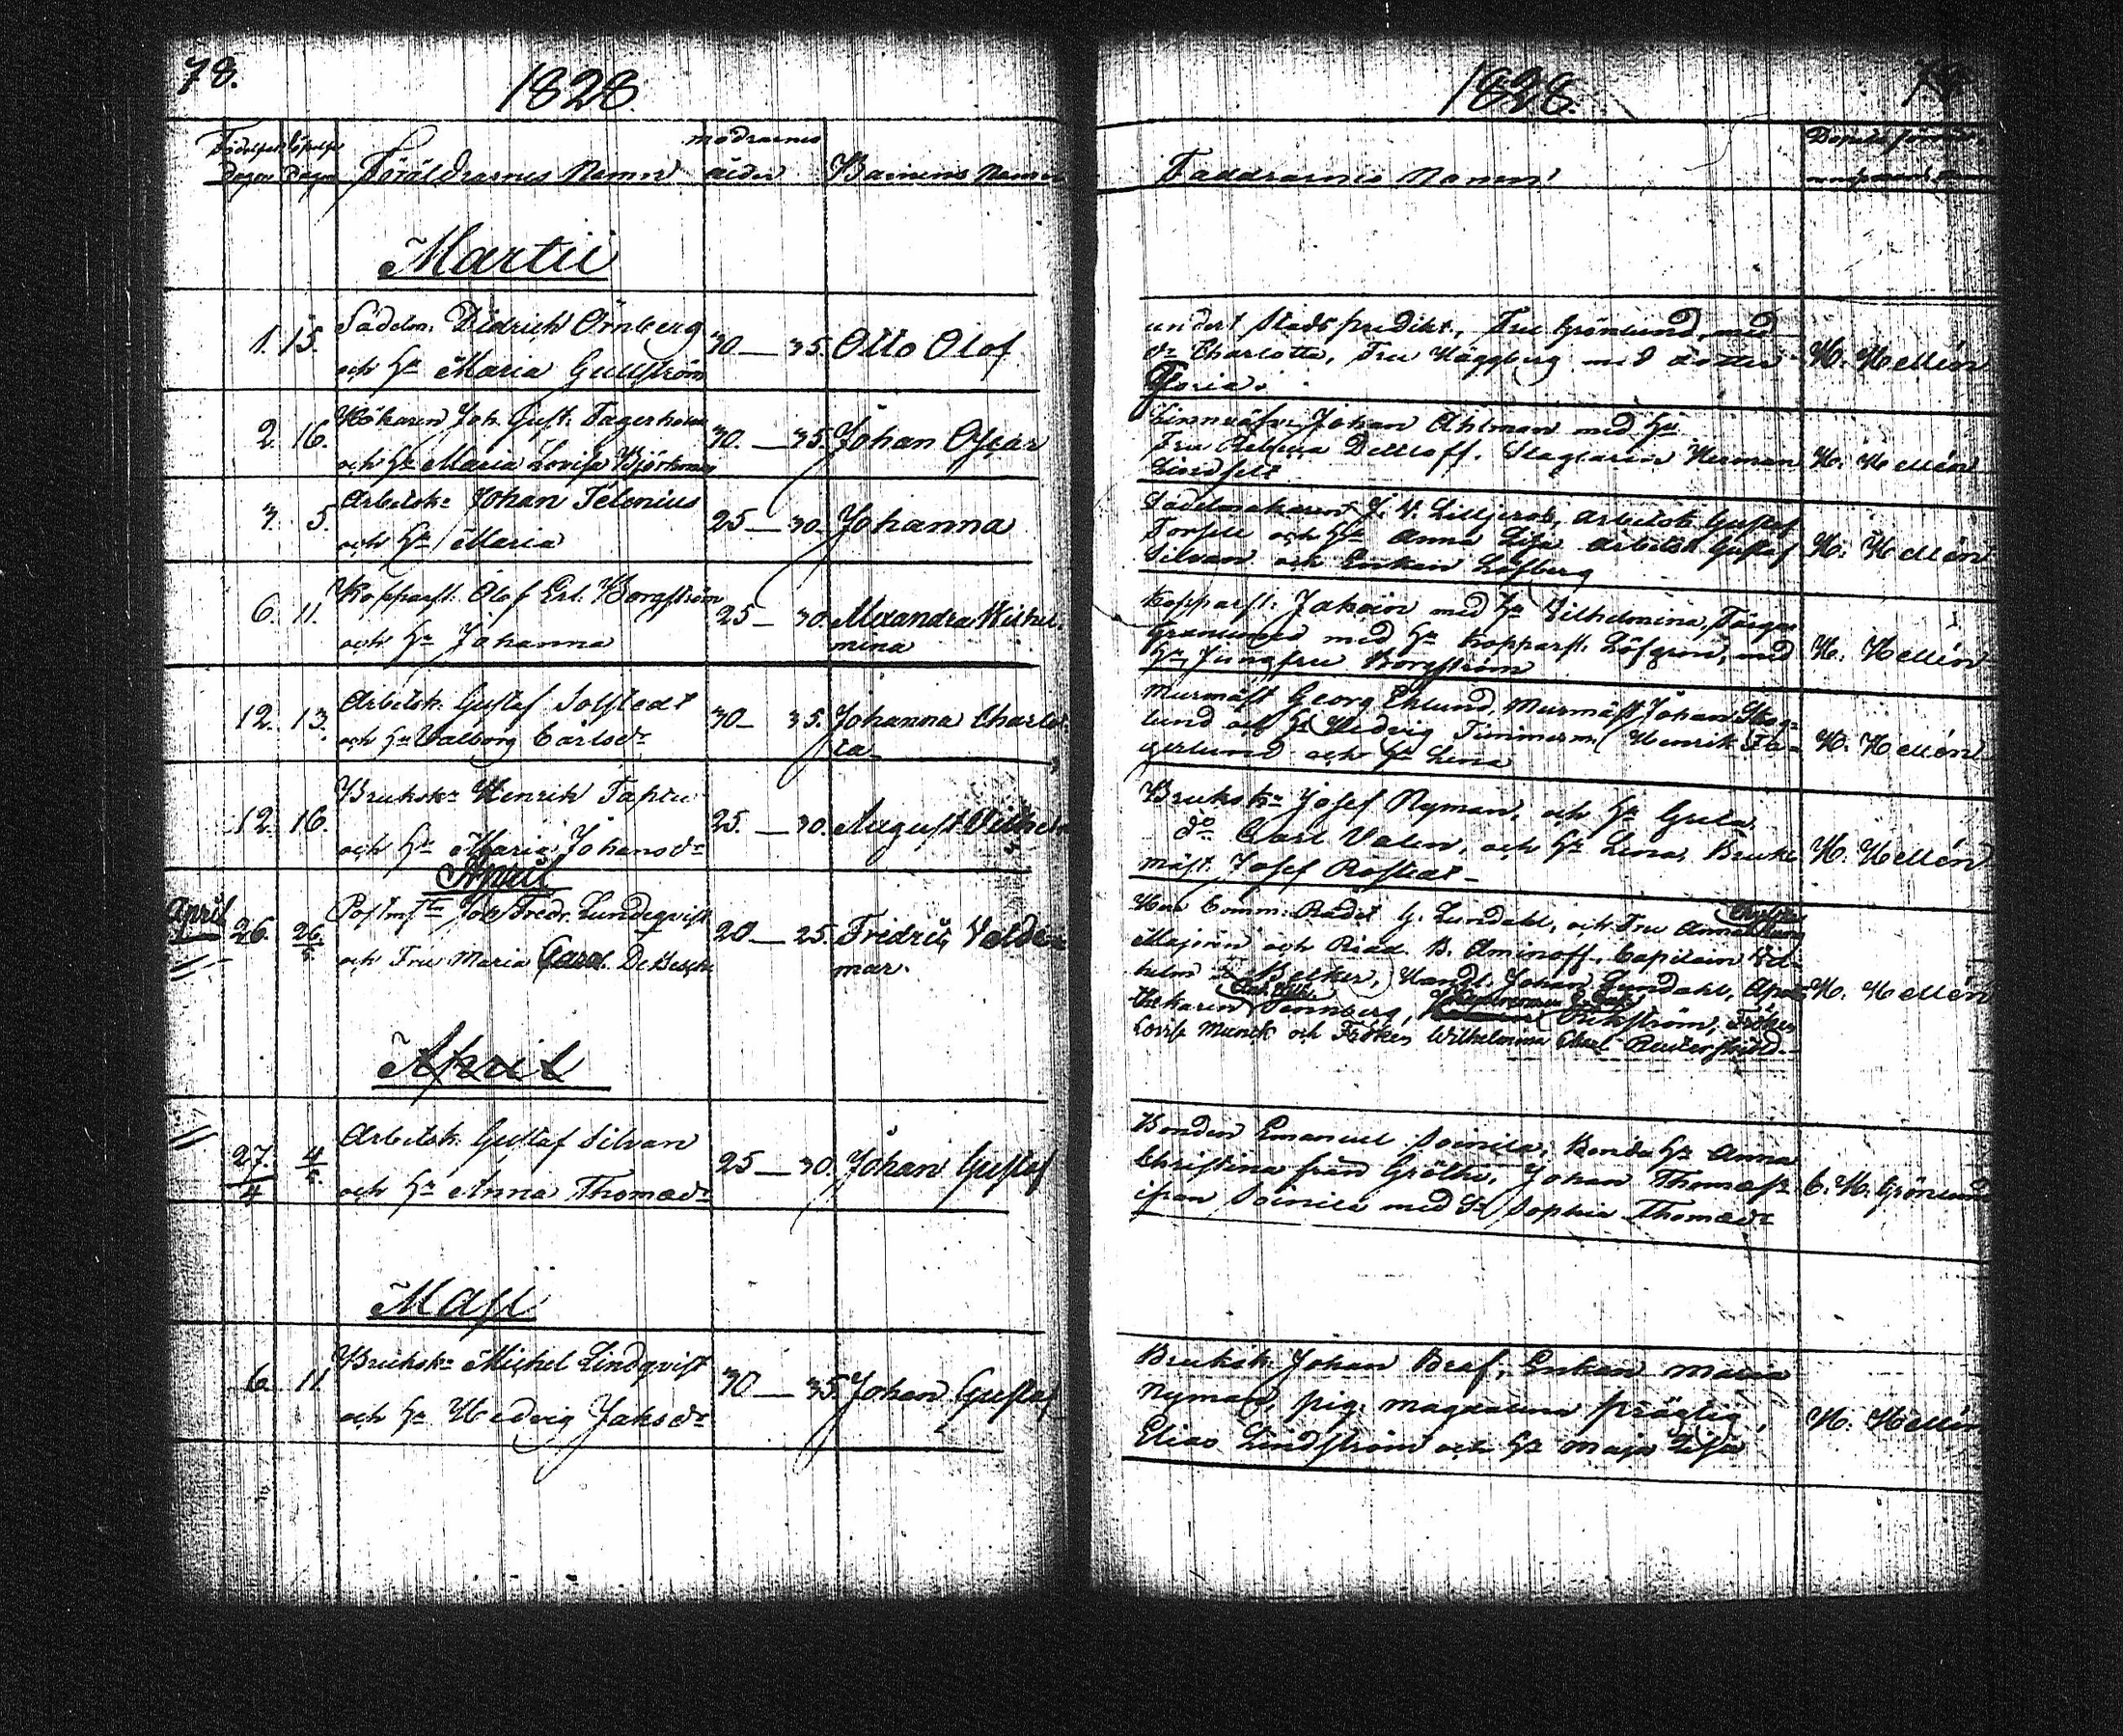 78.
1828
Födelse Döpelse
Dagar Dagar
Föräldrarnes Namn
mödrarnes
ålder
Barnens Namn
Martii
1. 15. Sadelm. Didrich Örnberg
och Hu Maria Gullström
30 — 35. Otto Olof
2. 16. Hökaren Joh. Gust. Fagerholm
och Hu Maria Lovisa Björkman
30. — 35. Johan Oscar
3. 5. Arbetsk: Johan Telenius
och Hu Maria
25 — 30. Johanna
6. 11. Kopparsl. Olof Erl. Borgström
och Hu Johanna
25 — 30. Alexandra Wilhel-
mina
12. 13. Arbetsk. Gustaf Solstedt
och Hu Valborg Carlsdr
30 — 35. Johanna Charlot-
ta
12. 16. Bruksk: Henrik Tapir
och Hu Maria Johansdr
25. — 30. August Vilhelm
April
April 26. 26/ Postmst Joh. Fredr. Lundeqvist
och Fru Maria Carol. De Besche
20 — 25. Fredric Valde-
mar.
April
27./4 4/5. Arbetsk. Gustaf Silvan
och Hu Anna Thomædr
25 — 30. Johan Gustaf
Maji
6. 11 Bruksk: Michel Lindqvist
och Hu Hedvig Jaksdr
30 — 35. Johan Gustaf
1828.
Faddrarnes Namn
undert Stadspredikt, Fru Grönlund, med
dr Charlotta, Fru Häggberg med dotter
H. Hellén
Johan Ahlman med Hu
Fru Rebecca Detloff. Slagtaren Herman
H. Hellén
Sadelmakaren J. V. Liljeros, Arbetsk. Gustaf
Torsell och Hu Anna Lisa Arbetsk. Gustaf
Silvan och Enkan Löfberg
H. Hellén
Kopparsl: med Hu Vilhelmina, Färgar
Granlund med Hu Kopparsl. Löfgren, med
Hu, Jungfru Borgström
H. Hellén
Murmäst Georg Ehlund, Murmäst Johan Skog-
lund och Hu Hedvig Timmerm. Henrik Fa-
gerlund och Hu Lena
H. Hellén
Bruksk: Josef Nyman, och Hu Greta,
do Carl Valen, och Hu Lena, Bruks
mäst. Josef Rostedt
H. Hellén
Herr Comm. Rådet G. Lundahl, och Fru Anna
Majoren och Ridd. B. Aminoff, Capitain Vil-
helm Becker, Handl. Johan Lundahl, Apo-
thekaren
Lovisa Munck och Fröken Wilhelmina Reuterskjöld
H. Hellén
Bonden Emanuel Soinila, Bonde Hu Anna
Christina från Gröthe, Johan Thomass:
ifrån Soinila med Hu Sophia Thomædr
C. H. Grönlund
Bruksk. Johan Braf, Enkan Maria
Nyman, pig. Magdalena Präglig,
Elias Lindström och Hu Maja Lisa
H. Hellén